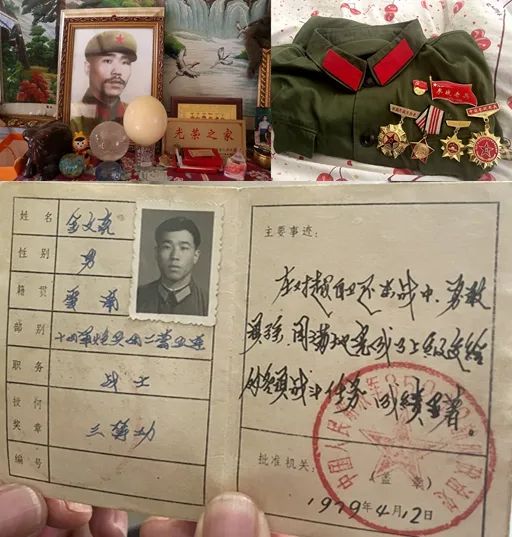 光荣之家
参战老兵
姓名
性别 男
籍贯
部别 十四军炮兵团二营五连
职务 战士
授何
奖章 三等功
编号
主要事迹:
在对越自卫还击战中,勇敢
顽强,圆满地完成了上级交给
的各项战斗任务 成绩显著。
批准机关:
(盖章)
1979年4月12日
中国人民解放军